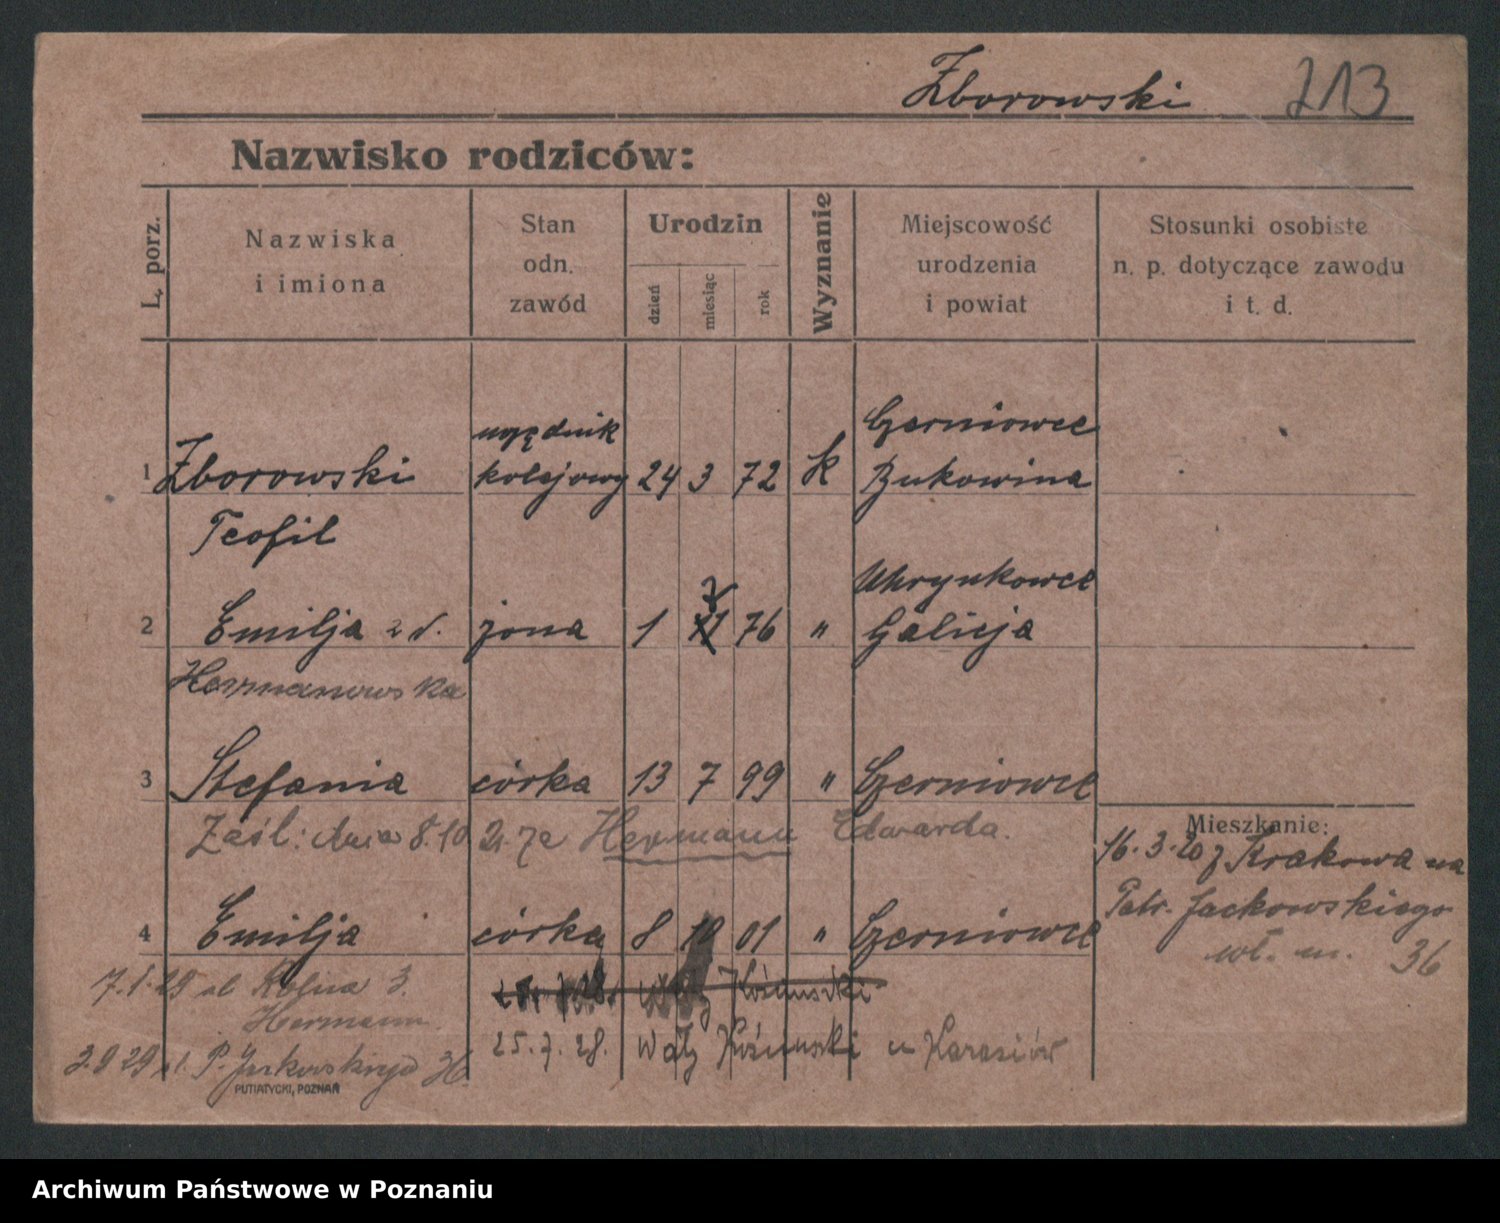 Zborowski 213
Nazwisko rodziców:
L. porz.
Nazwiska
i imiona
Stan
odn.
zawód
Urodzin
dzień
miesiąc
rok
Wyznanie
Miejscowość
urodzenia
i powiat
Stosunki osobiste
n. p. dotyczące zawodu
i t. d.
urzędnik Czerniowce
1 Zborowski kolejowy 24 3 72 k Bukowina
Teofil
2 Uhrynkowce
2 Emilja z d. żona 1 76 " Galicja
Hermanowska
3 Stefania córka 13 7 99 " Czerniowce
Zaśl: dnia 8.10 21. za Hermann Edwarda.
Mieszkanie:
16.3.20 z Krakowa na
Patr. Jackowskiego
wł. m. 36
4 Emilja córka 8 10 01 " Czerniowce
7.1.29 ul Kolna 3.
Hermann
25.7.28. Wały Kościuszki u Karasiów
3.9 29 ul. P. Jackowskiego 36.
PUTIATYCKI, POZNAŃ
Archiwum Państwowe w Poznaniu